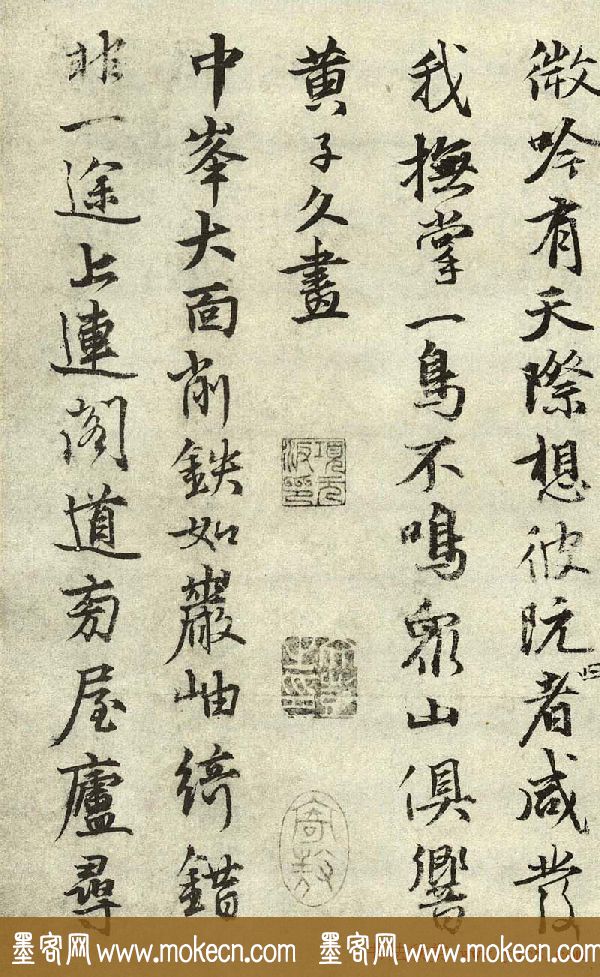 微吟有天際想彼阮者咸發
我撫掌一鳥不鳴衆山俱響
黄子久畫
中峯大面削鉄如巖岫綺錯
非一途上連閣道旁屋廬尋
項元汴印
墨客网 www.mokecn.com 墨客网 www.mokecn.com